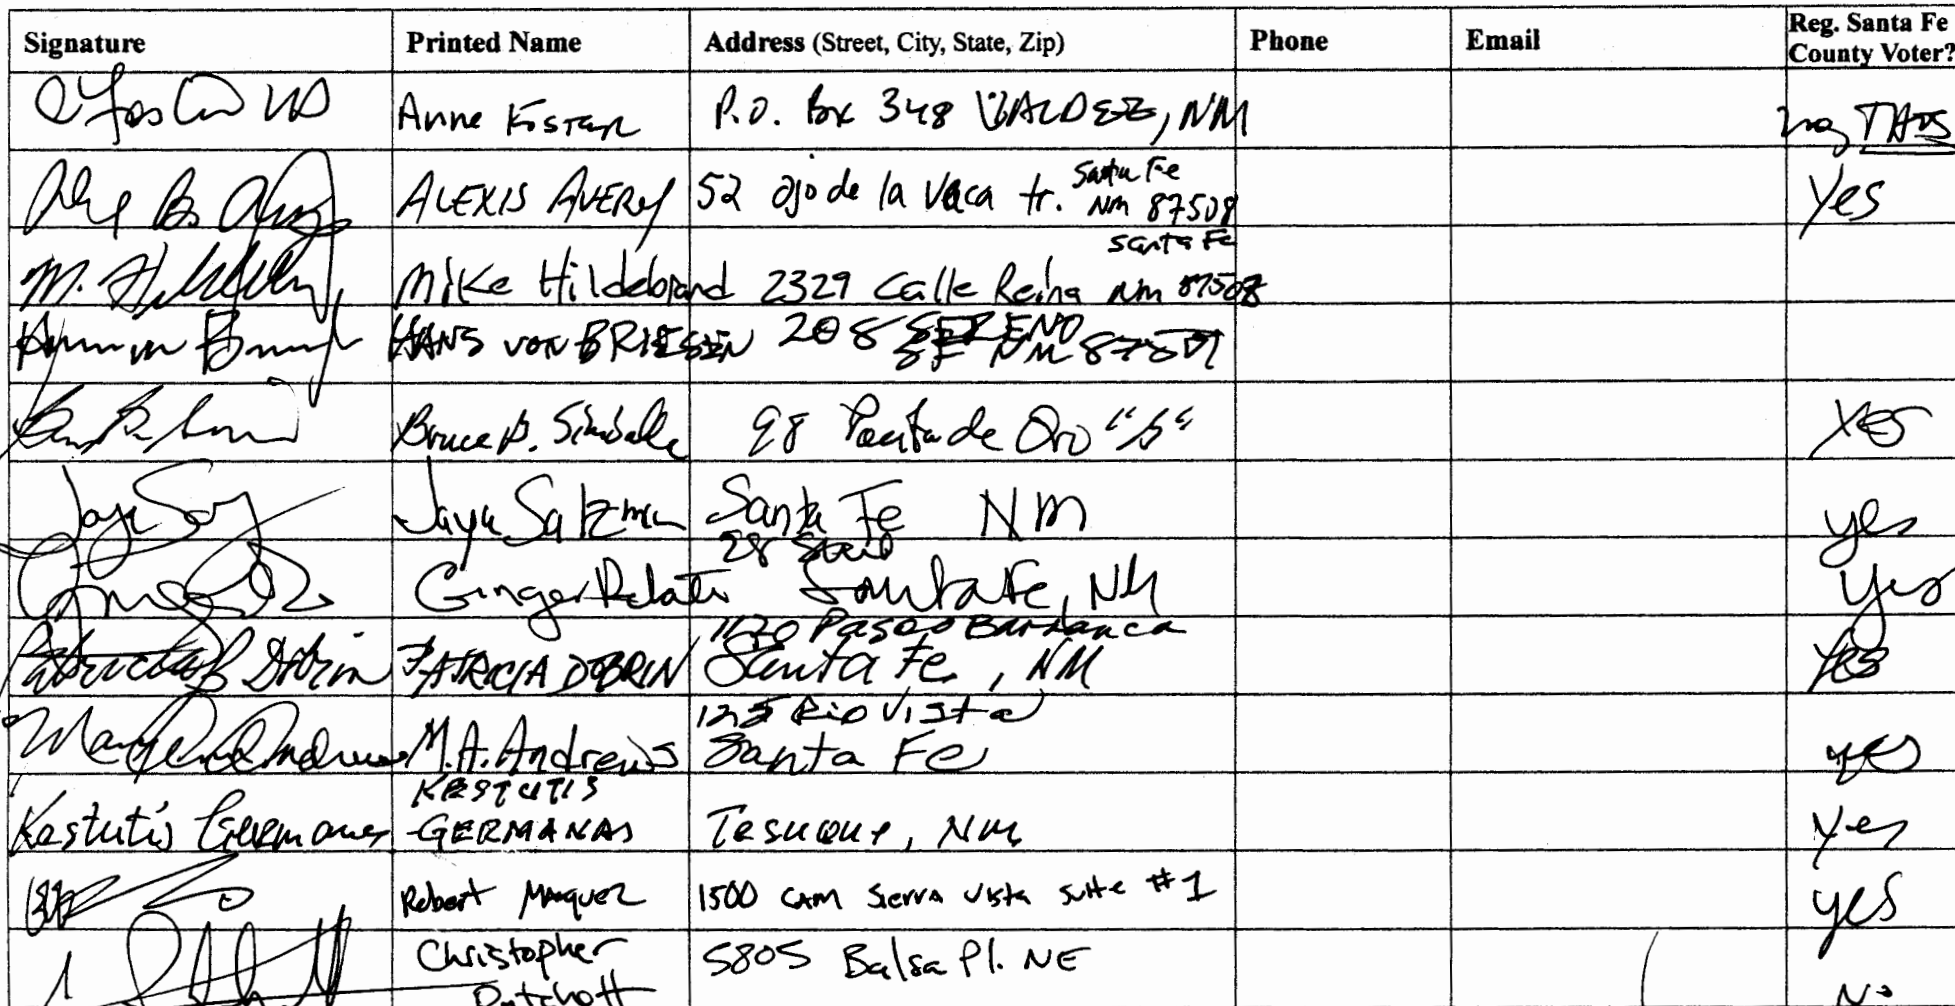 Signature Printed Name Address (Street, City, State, Zip) Phone Email Reg. Santa Fe
County Voter?
Anne Foster P.O. Box 348 VALDEZ, NM TAOS
ALEXIS AVERY 52 ojo de la vaca tr. Santa Fe
NM 87508 Yes
M. Mike Hildebrand 2329 Calle Reina Santa Fe
NM 87508
HANS VON BRIESEN 208 SERENO
SF NM 87501
Bruce B. 98 de Oro "B" YES
Jaya Satzman Santa Fe NM yes
Ginger 28
Santa Fe, NM Yes
Patricia Dobrin PATRICIA DOBRIN 1120 Paseo Barranca
Santa Fe, NM Yes
Andrews M.A. Andrews 125 Rio Vista
Santa Fe yes
Kestutis Germanas KESTUTIS
GERMANAS Tesuque, NM Yes
Robert Marquez 1500 CAM Sierra Vista Suite #1 yes
Christopher 5805 Balsa Pl. NE
No